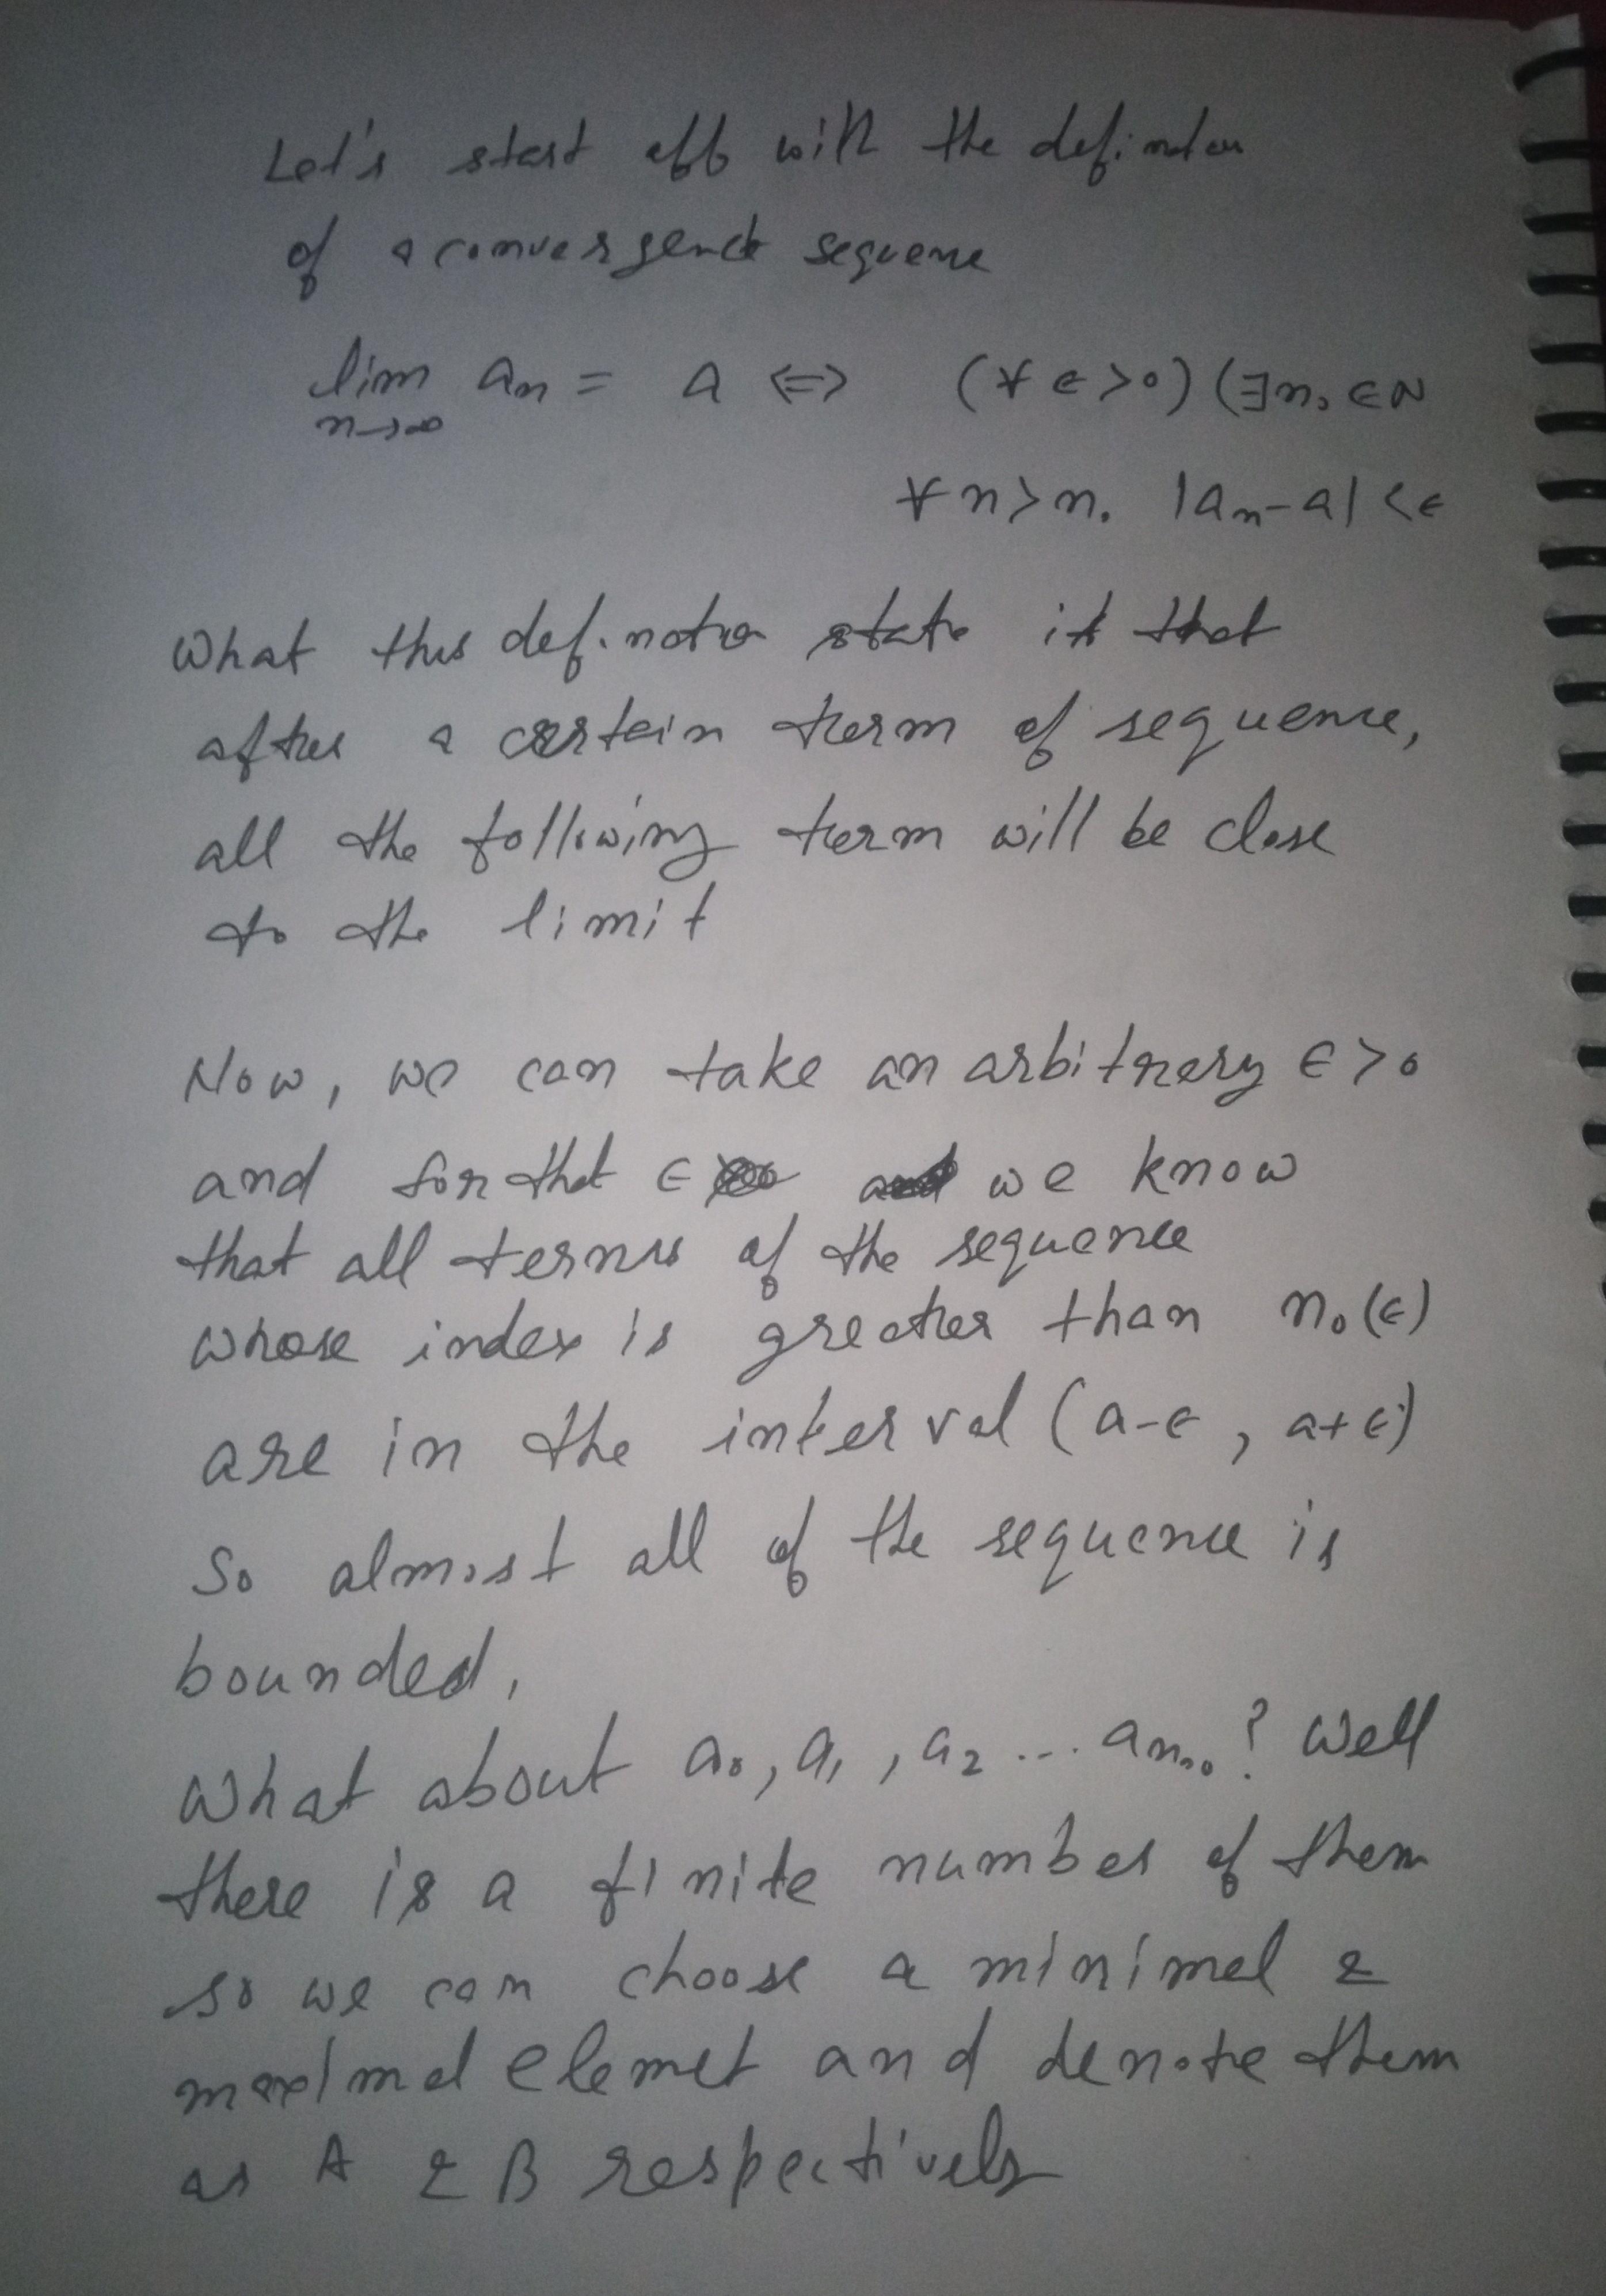 Let's start off with the definition
of a convergence sequence
lim aₙ = a ⇔ (∀ ϵ > 0) (∃n₀ ∈ N
n→∞
∀ n > n₀ |aₙ - a| < ϵ
What this definition state it that
after a certain term of sequence,
all the following term will be close
to the limit
Now, we can take an arbitrary ϵ > 0
and for that ϵ we know
that all terms of the sequence
whose index is greater than n₀(ϵ)
are in the interval (a-ϵ, a+ϵ)
So almost all of the sequence is
bounded,
What about a₀, a₁, a₂ ... aₙ₀? Well
there is a finite number of them
so we can choose a minimal &
maximal elemet and denote them
as A & B respectively